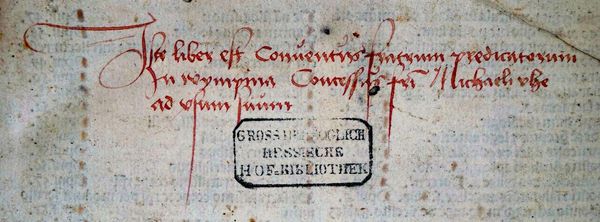 Iste liber est Conventus fratrum predicatorum
In wympina Concessus fri Michaeli vhe
ad usum suum
GROSSHERZOGLICH
HESSISCHE
HOFBIBLIOTHEK